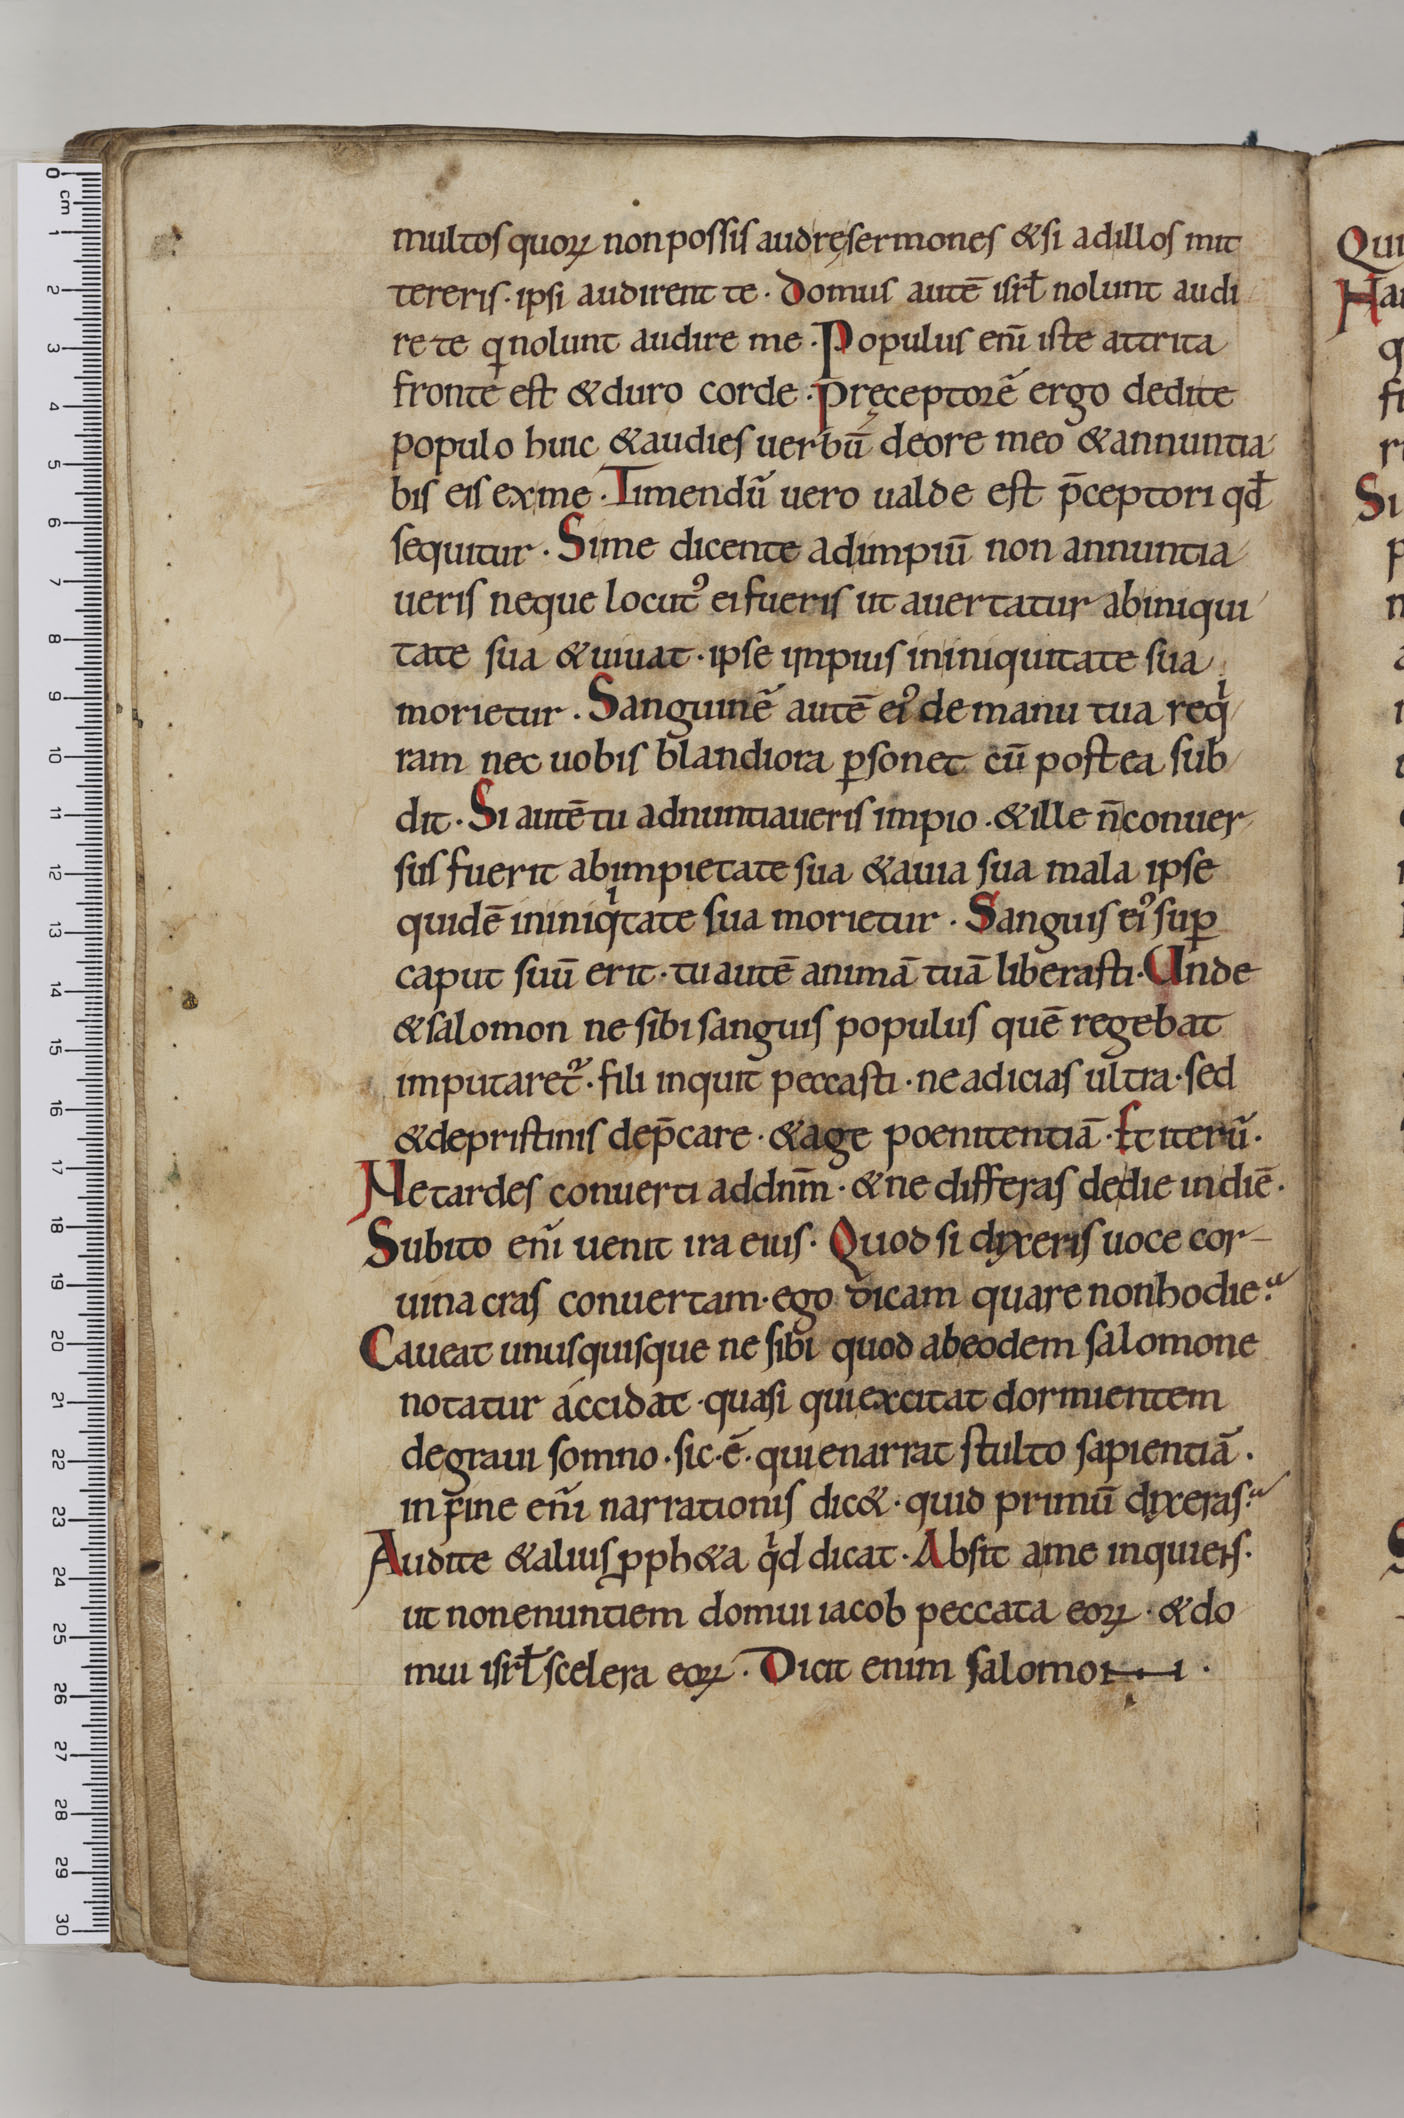 multos quoꝝ non possis audręsermones &si adillos mit
tereris · ipsi audirent te · Domus autē isrł nolunt audi
re te q nolunt audire me · Populus enī iste attrita
fronte est &duro corde · pręceptorē ergo dedi te
populo huic &audies uerbū deore meo &annuntia
bis eis exme · Timendū uero ualde est p̄ceptori qđ
sequitur · Sime dicente adimpiū non annuntia
ueris neque locut᾽ ei fueris ut auertatur abiniqui
tate sua &uiuat · ipse impius ininiquitate sua
morietur · Sanguinē autē ei᾽ demanu tua reqⁱ
ram nec uobis blandiora ꝑsonet cū postea sub
dit · Si autē tu adnuntiaueris impio · &ille n̄conuer
sus fuerit abimpietate sua &auia sua mala ipse
quidē ininiqⁱtate sua morietur · Sanguis ei᾽ suꝑ
caput suū erit · tu autē animā tuā liberasti · Unde
&salomon ne sibi sanguis populus quē regebat
imputaret᾽ · fili inquit peccasti · ne adicias ultra · sed
&depristinis dep̄care · &age poenitentiā · Et iterū ·
Ne tardes conuerti addnm̄ · &ne differas dedie indiē ·
Subito enī uenit ira eius · Quod si dixeris uoce cor-
uina cras conuertam · ego dicam quare nonhodie?
Caueat unusquisque ne sibi quod abeodem salomone
notatur accidat · quasi qui excitat dormientem
degraui somno · sic · ē · qui enarrat stulto sapientiā ·
in fine enī narrationis dic& · quid primū dixeras?
Audite &alius ꝓph&a qⁱd dicat · Absit ame inquiens ·
ut nonenuntiem domui iacob peccata eoꝝ · &do
mui isrł scelera eoꝝ · Dicit enim salomon ·
Qui
Si